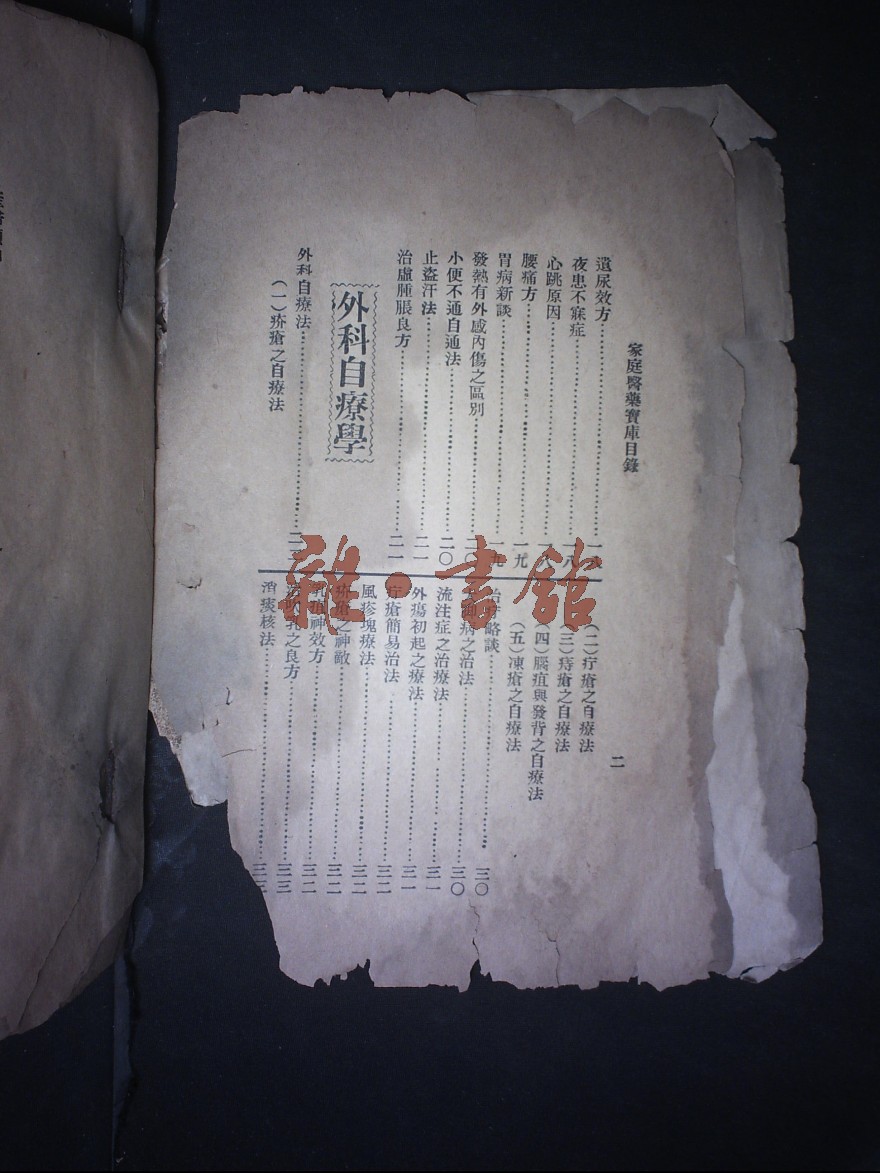 家庭醫藥寶庫目錄
二
遺尿效方
夜患不寐症 一八
心跳原因 一八
腰痛方 一九
胃病新談 一九
發熱有外感內傷之區別 二〇
小便不通自通法 二〇
止盜汗法 二一
治虛腫脹良方 二一
外科自療學
外科自療法
(一)疥瘡之自療法
(二)疔瘡之自療法
(三)痔瘡之自療法
(四)腦疽與發背之自療法
(五)凍瘡之自療法
略談 三〇
病之治法 三〇
流注症之治療法 三一
外瘍初起之療法 三一
疔瘡簡易治法 三二
風疹塊療法 三二
疥瘡之神敵 三二
乳疽神效方 三二
治吹乳之良方 三三
消痰核法 三三
雜·書館